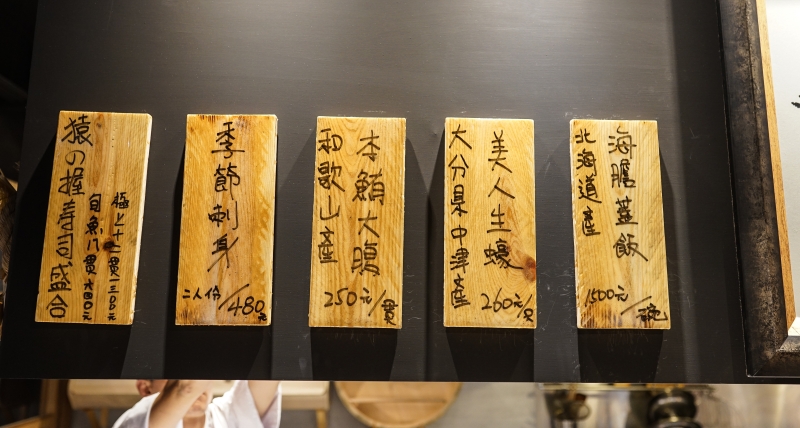 海膽蓋飯
北海道產
1500元/碗
美人生蠔
大分県中津產
260元/只
本鮪大腹
和歌山產
250元/貫
季節刺身
二人份/480元
猿の握寿司盛合
極上十二貫一三〇〇元
旬魚八貫六四〇元